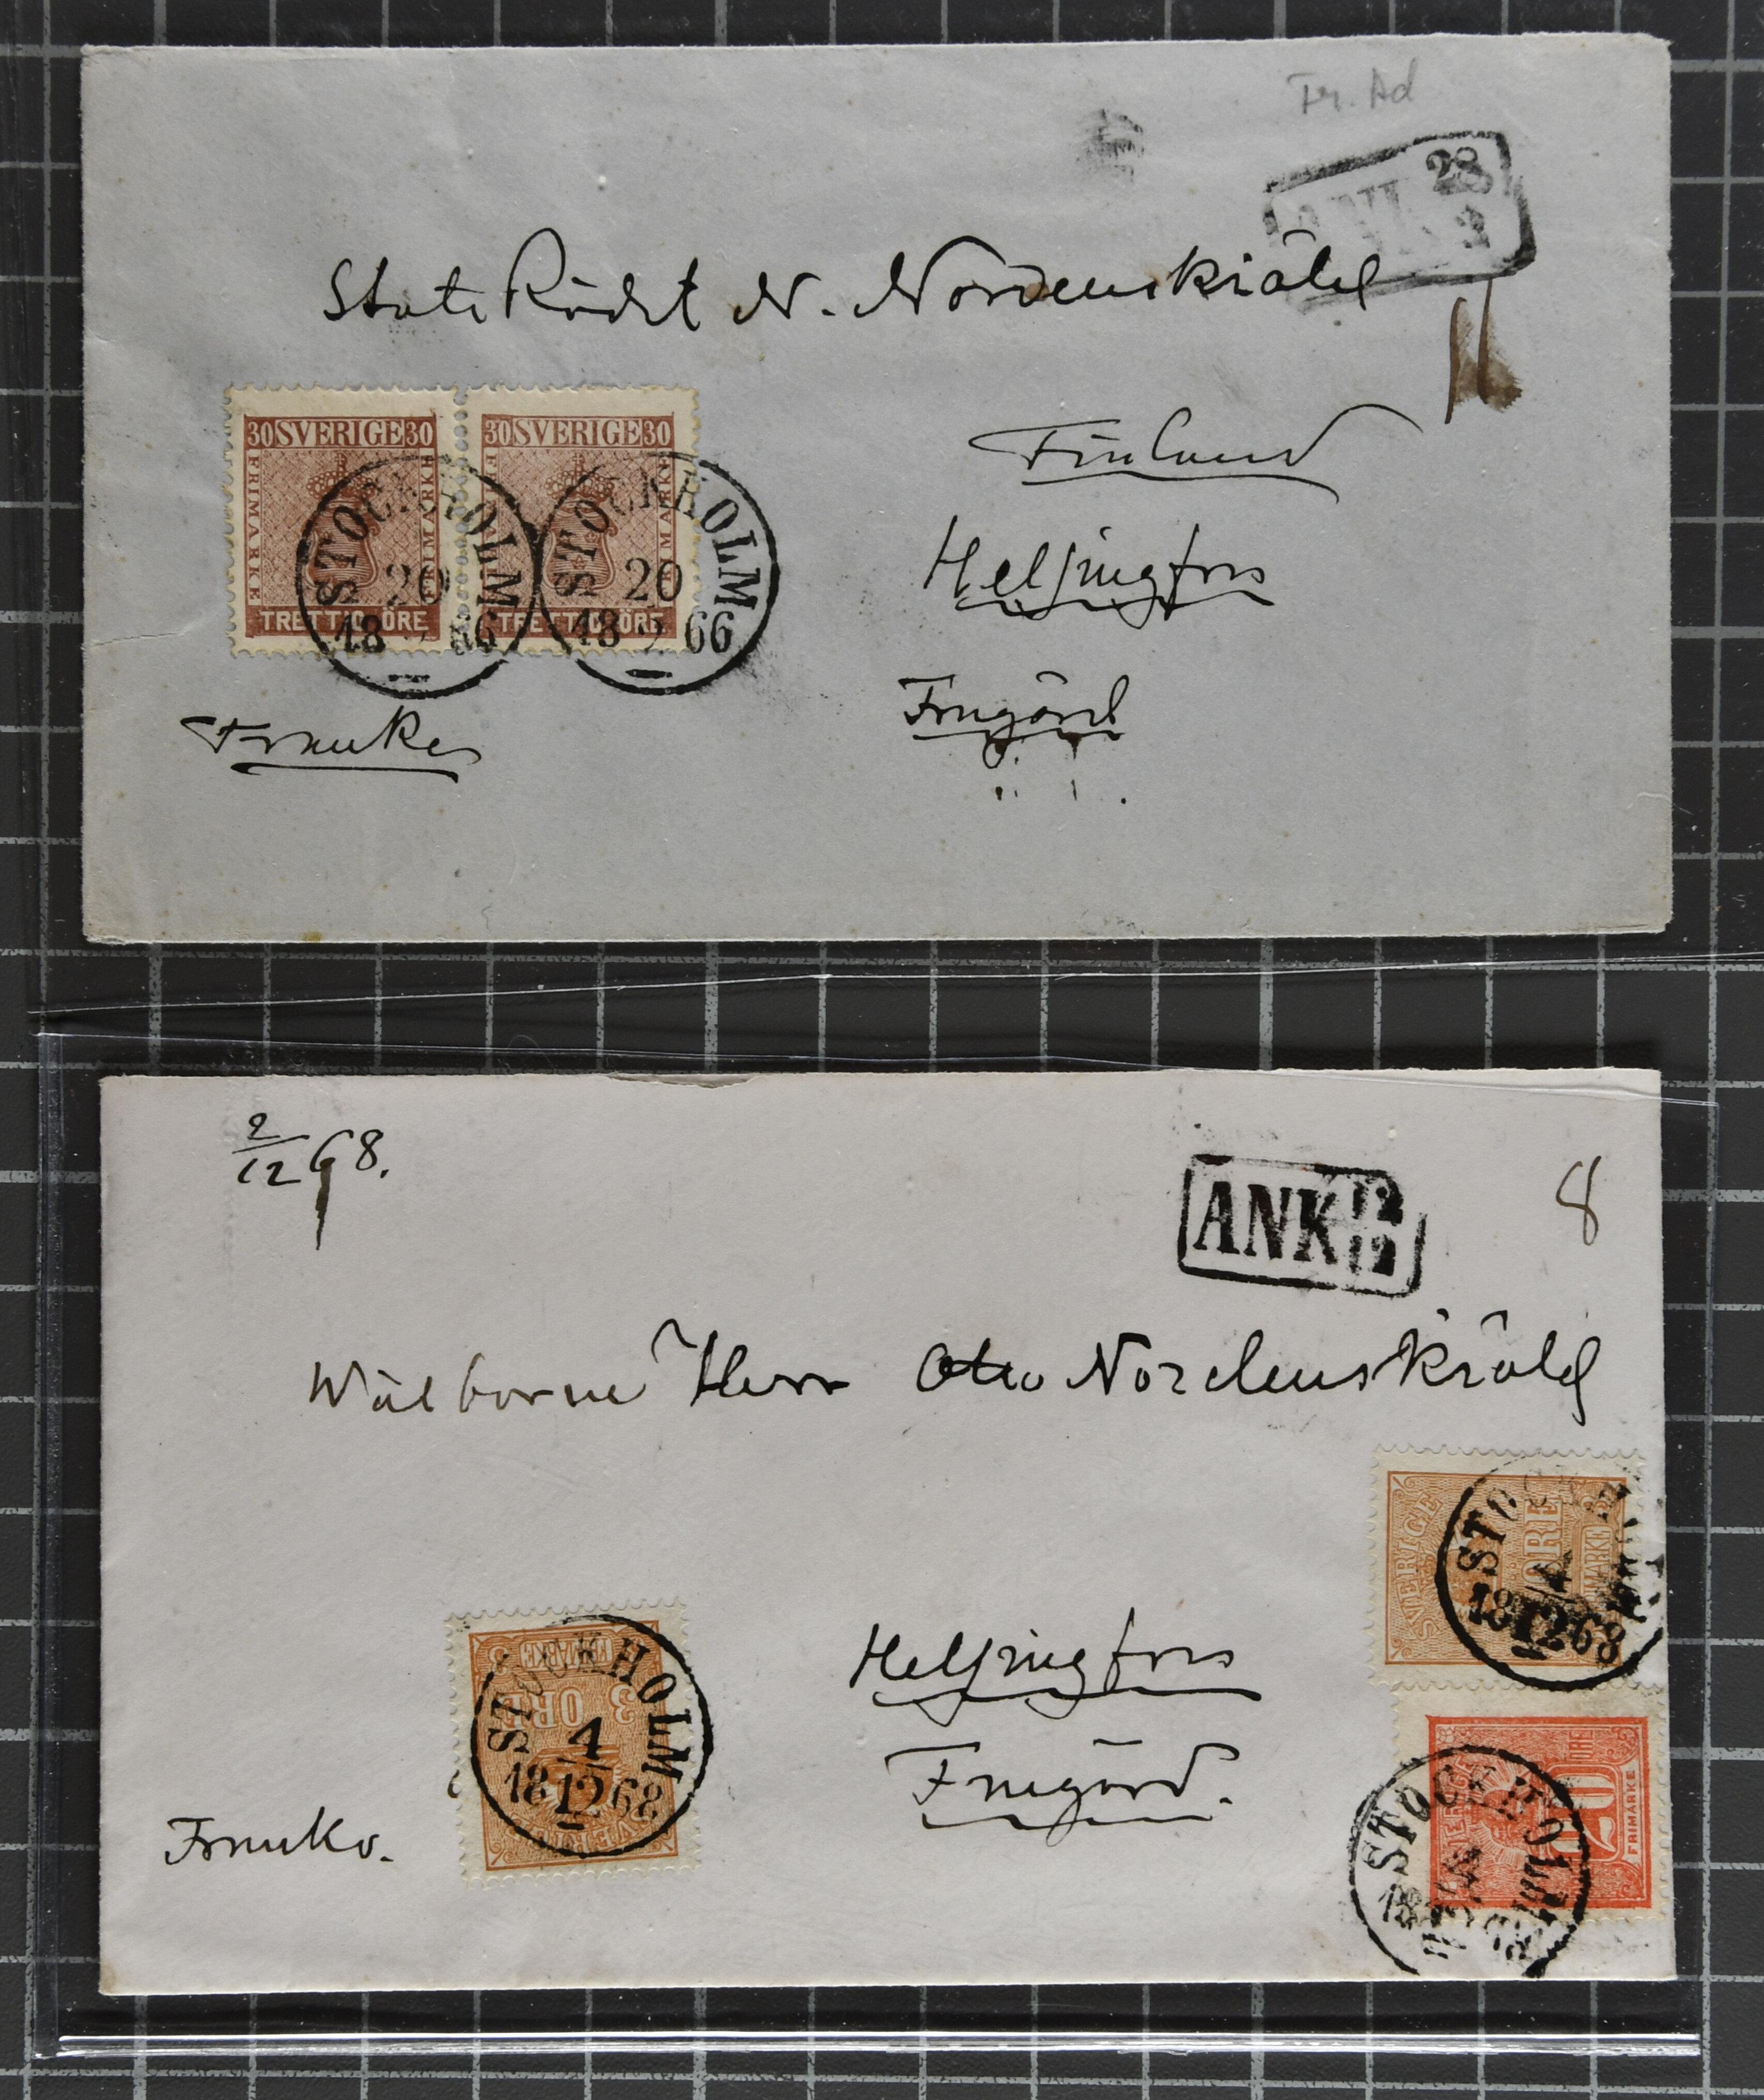 Fr. Ad
28
2
Stats Rådet N. Nordenskiöld
30 SVERIGE 30
FRIMÄRKE
FRIMÄRKE
TRETTIO ÖRE
30 SVERIGE 30
FRIMÄRKE
TRETTIO ÖRE
STOCKHOLM
20
18 2 66
STOCKHOLM
20
18 2 66
Finland
Helsingfors
Frugård
Franko
2/12 68.
ANK
12
8
Wälborne Herr Otto Nordenskiöld
SVERIGE
ÖRE
FRIMÄRKE
STOCKHOLM
4
18 12 68
3 ÖRE
FRIMÄRKE
SVERIGE
STOCKHOLM
4
18 12 68
Helsingfors
Frugård.
Franko.
SVERIGE
20
ÖRE
FRIMÄRKE
STOCKHOLM